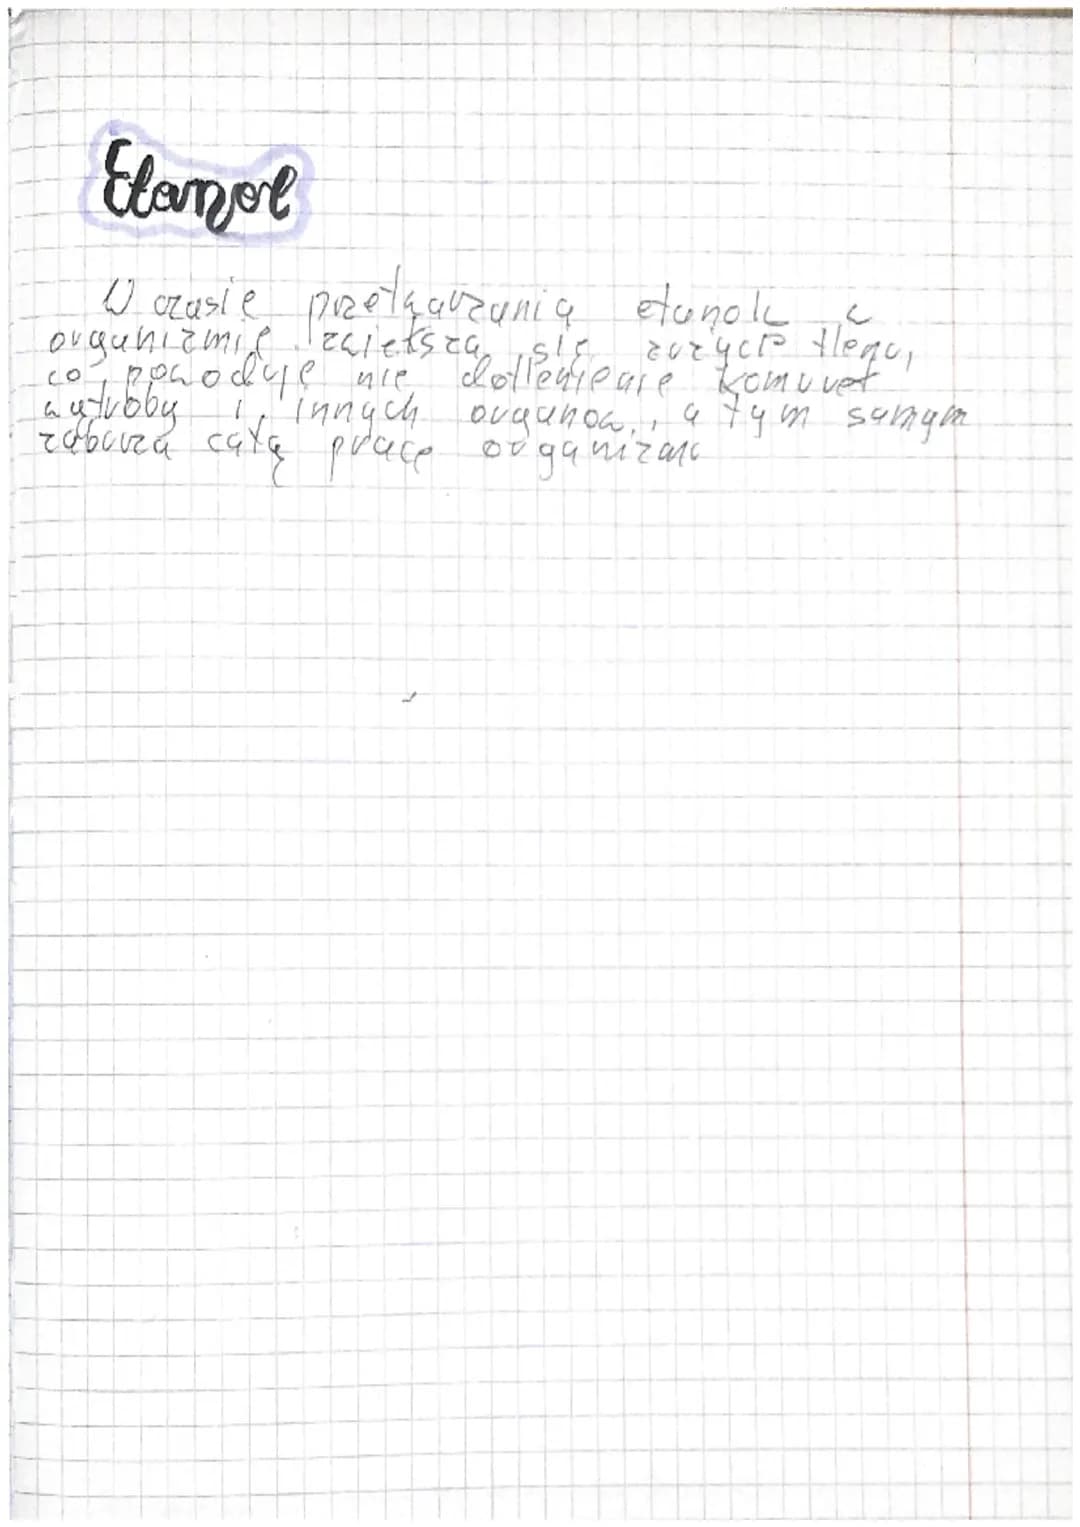 Etanol
W czasie przetwarzania etanolu w
organizmie zwiększa się zużycie tlenu,
co powoduje nie dotlenienie komurek
wątroby i innych organów, a tym samym
zaburza całą pracę organizmu